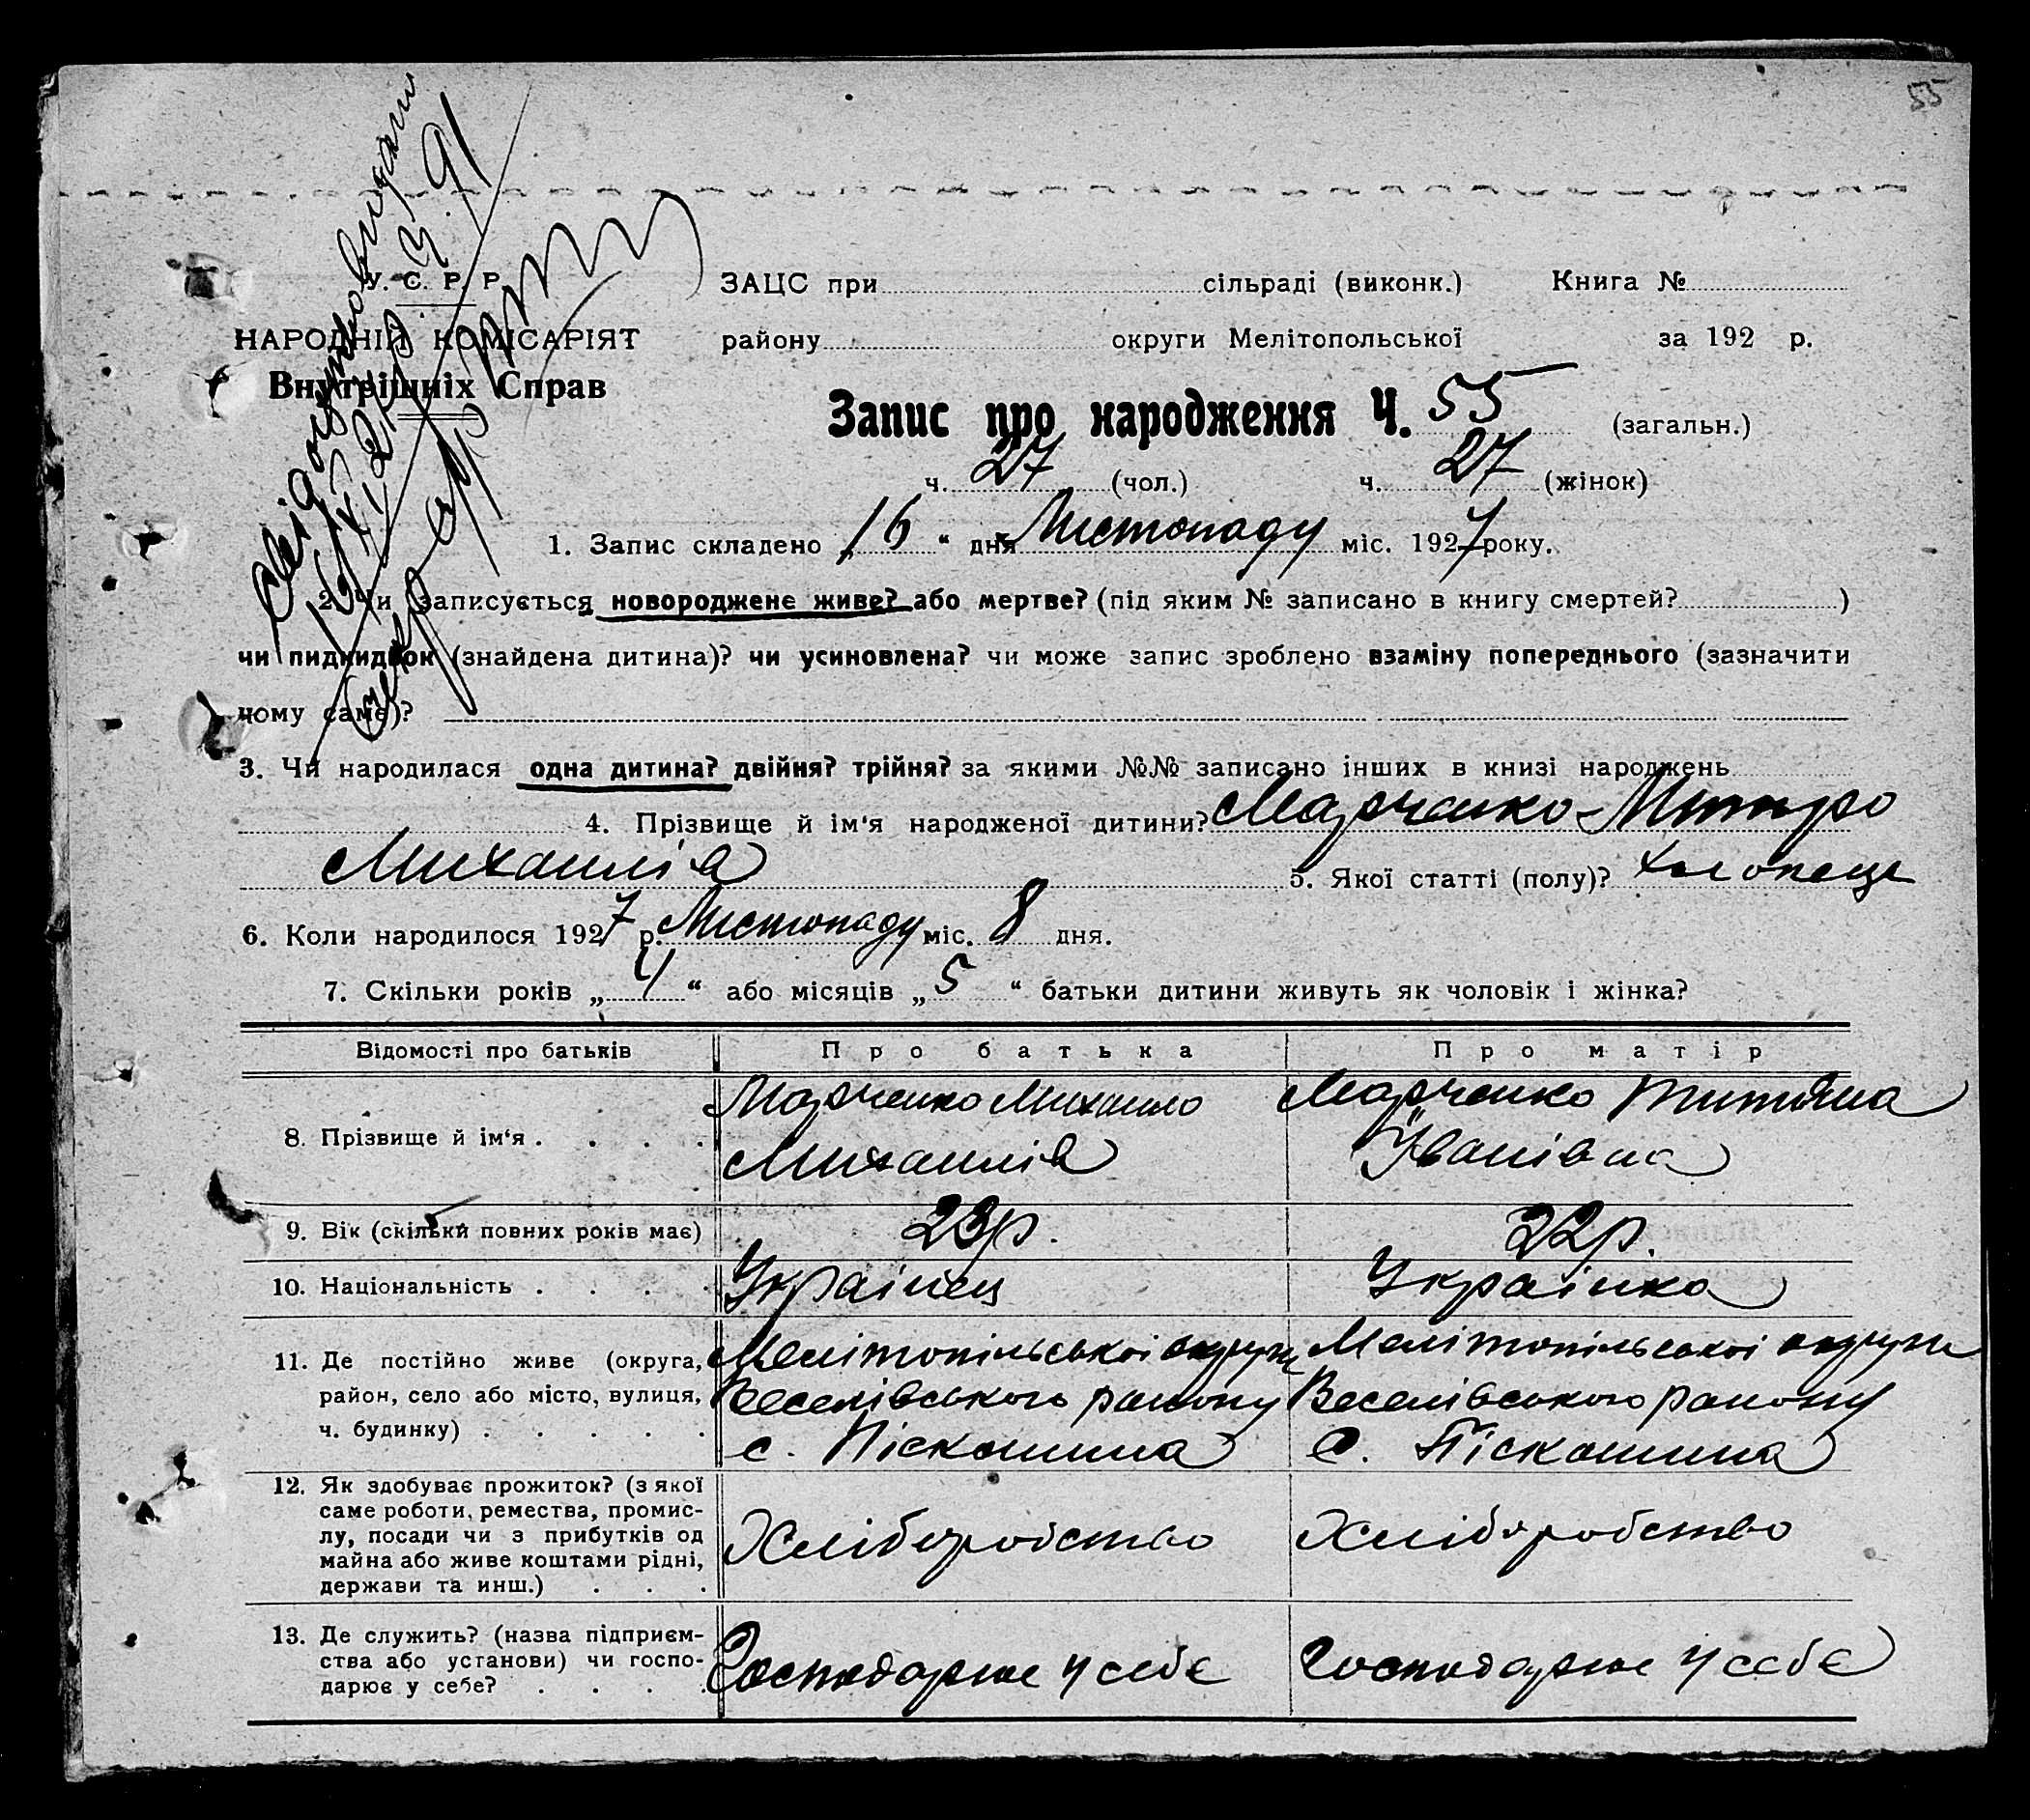 55
У. С. Р. Р.
НАРОДНІЙ КОМІСАРІЯТ
Внутрішніх Справ
ЗАЦС при сільраді (виконк.) Книга №
району округи Мелітопольської за 192 р.
Запис про народження Ч. 55 (загальн.)
ч. 27 (чол.) ч. 27 (жінок)
1. Запис складено „16“ дня Листопаду міс. 1927 року.
2. Чи записується новороджене живе? або мертве? (під яким № записано в книгу смертей? )
чи пидкидьок (знайдена дитина)? чи усиновлена? чи може запис зроблено взаміну попереднього (зазначити
чому саме)?
3. Чи народилася одна дитина? двійня? трійня? за якими №№ записано інших в книзі народжень
4. Прізвище й ім‘я народженої дитини? Марченко Митро
Михайлів 5. Якої статті (полу)? хлопець
6. Коли народилося 1927 р. Листопаду міс. 8 дня.
7. Скільки років „4“ або місяців „5“ батьки дитини живуть як чоловік і жінка?
Відомості про батьків Про батька Про матір
8. Прізвище й ім‘я . . . . Марченко Михайло Марченко Титяна
Михайлів Іванівна
9. Вік (скільки повних років має) 23р. 22р.
10. Національність . . . . Українец Українка
11. Де постійно живе (округа, Мелітопільської округи Мелітопільської округи
район, село або місто, вулиця, Веселівського району Веселівського району
ч. будинку) . . . . . с. Піскошина с. Піскошина
12. Як здобуває прожиток? (з якої
саме роботи, ремества, промис-
лу, посади чи з прибутків од Хліборобство Хліборобство
майна або живе коштами рідні,
держави та инш.) . . .
13. Де служить? (назва підприєм-
ства або установи) чи госпо- Господарює у себе Господарює у себе
дарює у себе? . . . .